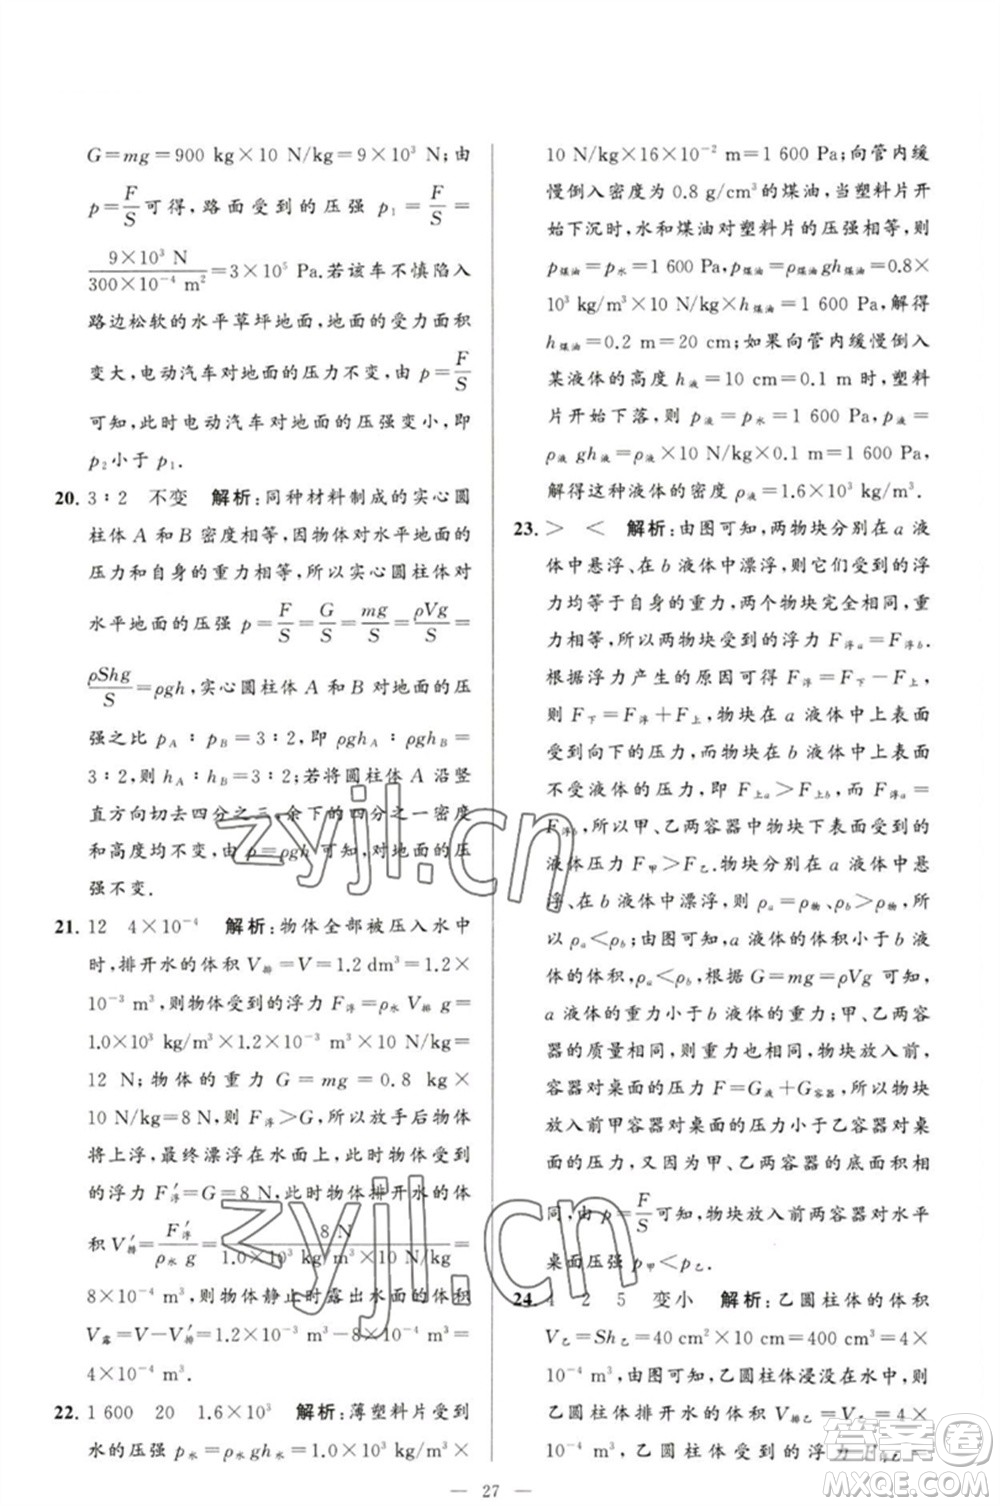 G=mg=900 kg×10 N/kg=9×10³ N;由
p=F/S可得,路面受到的压强 p₁=F/S=
9×10³ N/300×10⁻⁴ m²=3×10⁵ Pa.若该车不慎陷入
路边松软的水平草坪地面,地面的受力面积
变大,电动汽车对地面的压力不变,由 p=F/S
可知,此时电动汽车对地面的压强变小,即
p₂小于 p₁.
20. 3∶2 不变 解析:同种材料制成的实心圆
柱体 A 和 B 密度相等,因物体对水平地面的
压力和自身的重力相等,所以实心圆柱体对
水平地面的压强 p=F/S=G/S=mg/S=ρVg/S=
ρShg/S=ρgh,实心圆柱体 A 和 B 对地面的压
强之比 p_A∶p_B=3∶2,即 ρgh_A∶ρgh_B=
3∶2,则 h_A∶h_B=3∶2;若将圆柱体 A 沿竖
直方向切去四分之三,余下的四分之一密度
和高度均不变,由 p=ρgh 可知,对地面的压
强不变.
21. 12 4×10⁻⁴ 解析:物体全部被压入水中
时,排开水的体积 V排=V=1.2 dm³=1.2×
10⁻³ m³,则物体受到的浮力 F浮=ρ水 V排 g=
1.0×10³ kg/m³×1.2×10⁻³ m³×10 N/kg=
12 N;物体的重力 G=mg=0.8 kg×
10 N/kg=8 N,则 F浮>G,所以放手后物体
将上浮,最终漂浮在水面上,此时物体受到
的浮力 F′浮=G=8 N,此时物体排开水的体
积 V′排=F′浮/ρ水 g=8 N/1.0×10³ kg/m³×10 N/kg=
8×10⁻⁴ m³;物体静止时露出水面的体积
V露=V−V′排=1.2×10⁻³ m³−8×10⁻⁴ m³=
4×10⁻⁴ m³.
22. 1 600 20 1.6×10³ 解析:薄塑料片受到
水的压强 p水=ρ水 gh水=1.0×10³ kg/m³×
10 N/kg×16×10⁻² m=1 600 Pa;向管内缓
慢倒入密度为 0.8 g/cm³的煤油,当塑料片开
始下沉时,水和煤油对塑料片的压强相等,则
p煤油=p水=1 600 Pa,p煤油=ρ煤油gh煤油=0.8×
10³ kg/m³×10 N/kg×h煤油=1 600 Pa,解得
h煤油=0.2 m=20 cm;如果向管内缓慢倒入
某液体的高度 h液=10 cm=0.1 m 时,塑料
片开始下落,则 p液=p水=1 600 Pa,p液=
ρ液 gh液=ρ液×10 N/kg×0.1 m=1 600 Pa,
解得这种液体的密度 ρ液=1.6×10³ kg/m³.
23. > < 解析:由图可知,两物块分别在 a 液
体中悬浮、在 b 液体中漂浮,则它们受到的浮
力均等于自身的重力,两个物块完全相同,重
力相等,所以两物块受到的浮力 F浮a=F浮b.
根据浮力产生的原因可得 F浮=F下−F上,
则 F下=F浮+F上,物块在 a 液体中上表面
受到向下的压力,而物块在 b 液体中上表面
不受液体的压力,即 F上a>F上b,而 F浮a=
F浮b,所以甲、乙两容器中物块下表面受到的
液体压力 F甲>F乙.物块分别在 a 液体中悬
浮、在 b 液体中漂浮,则 ρa=ρ物、ρb>ρ物,所
以 ρa<ρb;由图可知,a 液体的体积小于 b 液
体的体积,ρa<ρb,根据 G=mg=ρVg 可知,
a 液体的重力小于 b 液体的重力;甲、乙两容
器的质量相同,则重力相同,物块放入前,
容器对桌面的压力 F=G液+G容器,则物块
放入前甲容器对桌面的压力小于乙容器对桌
面的压力,又因为甲、乙两容器的底面积相
同,由 p=F/S可知,物块放入前两容器对水平
桌面压强 p甲<p乙.
24. 4 2 5 变小 解析:乙圆柱体的体积
V乙=Sh乙=40 cm²×10 cm=400 cm³=4×
10⁻⁴ m³,由图可知,乙圆柱体浸没在水中,则
乙圆柱体排开水的体积 V排乙=V乙=4×
10⁻⁴ m³,乙圆柱体受到的浮力 F浮乙=
— 27 —
zyjl.cn
zyjl.cn
答案圈
MXQE.COM